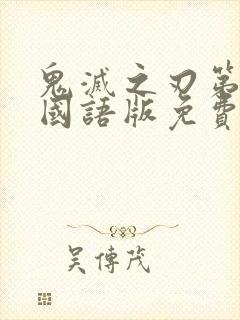 鬼滅之刃第
國語版免費
吴傳茂